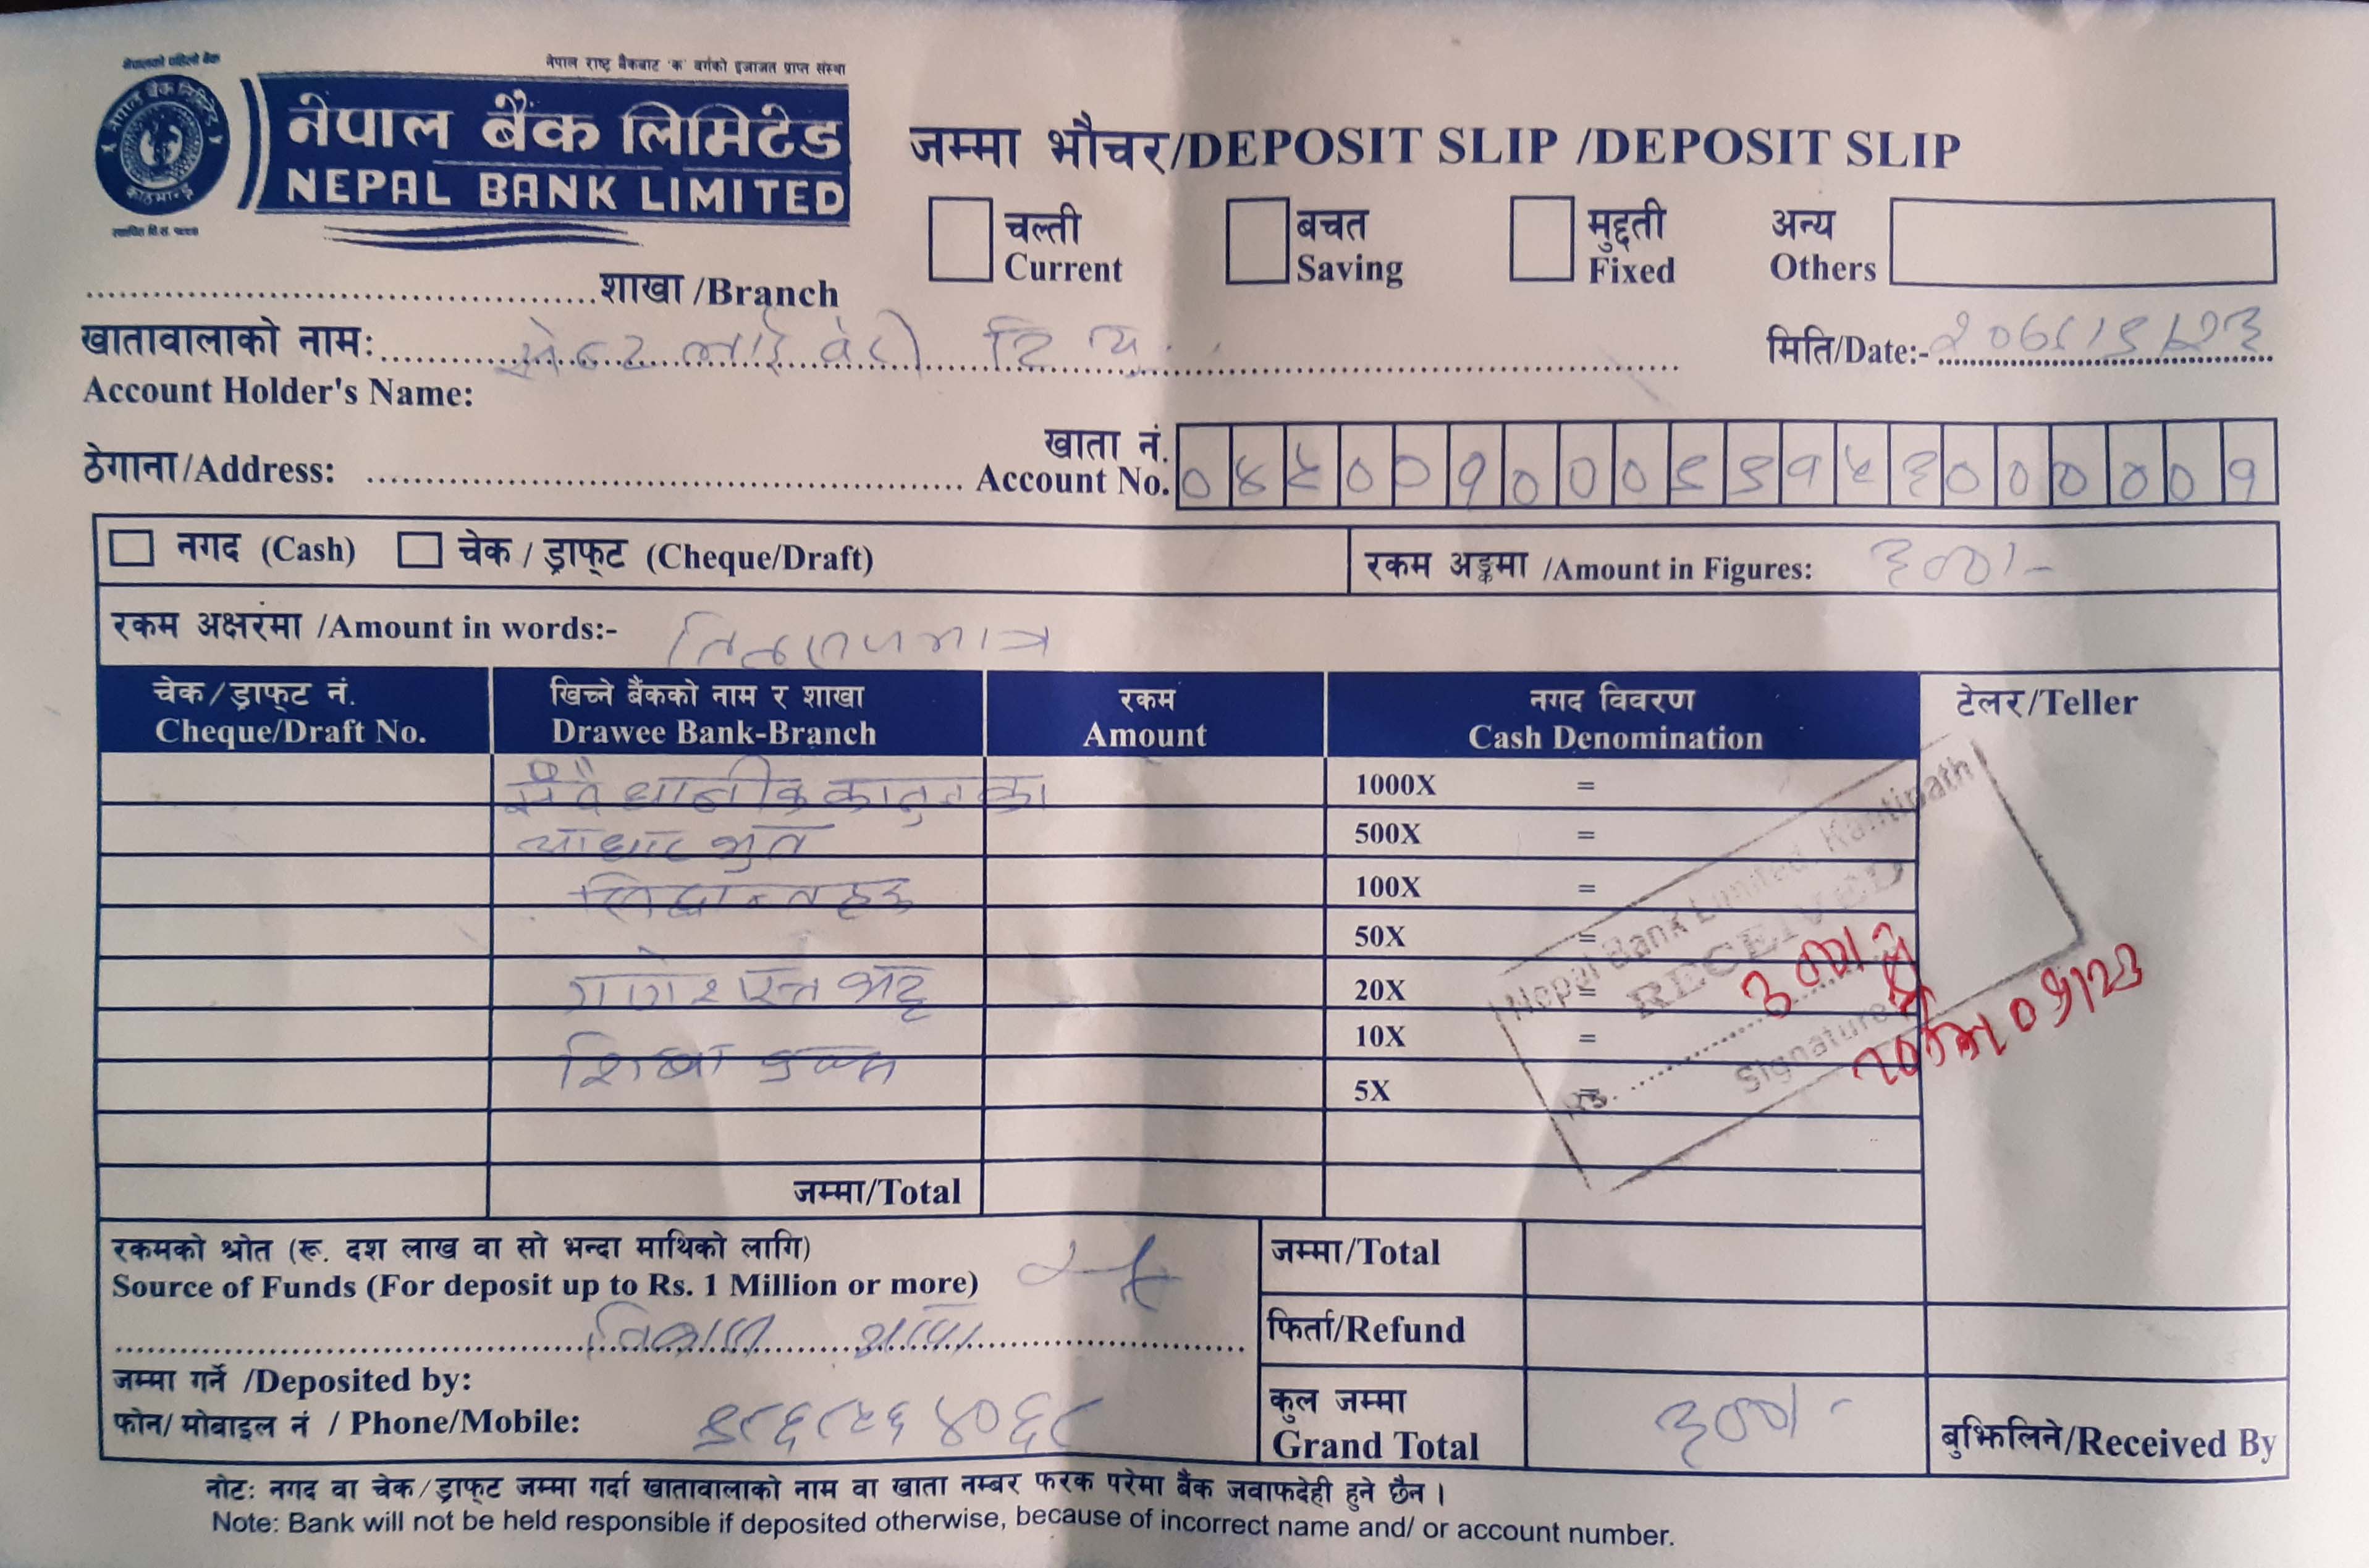 नेपालको पहिलो बैंक
नेपाल राष्ट्र बैंकबाट 'क' वर्गको इजाजत प्राप्त संस्था
नेपाल बैंक लिमिटेड
काठमान्डू
नेपाल बैंक लिमिटेड
NEPAL BANK LIMITED
जम्मा भौचर/DEPOSIT SLIP /DEPOSIT SLIP
चल्ती
Current
बचत
Saving
मुद्दती
Fixed
अन्य
Others
शाखा /Branch
खातावालाको नाम: सेन्ट लाईब्रेरी
Account Holder's Name:
मिति/Date:-
ठेगाना/Address:
खाता नं.
Account No.
नगद (Cash) चेक / ड्राफ्ट (Cheque/Draft)
रकम अङ्कमा /Amount in Figures: ३००।-
रकम अक्षरमा /Amount in words:- मात्र
चेक / ड्राफ्ट नं.
Cheque/Draft No.
खिच्ने बैंकको नाम र शाखा
Drawee Bank-Branch
रकम
Amount
नगद विवरण
Cash Denomination
टेलर/Teller
संवैधानीक कानुनका
1000X =
आधारभुत
500X =
सिद्धान्तहरु
100X =
50X =
गणेशदत्त भट्ट
20X =
10X =
5X =
Nepal Bank Limited, Kantipath
RECEIVED
Rs. ३००।
Signature
जम्मा/Total
रकमको श्रोत (रू. दश लाख वा सो भन्दा माथिको लागि)
Source of Funds (For deposit up to Rs. 1 Million or more)
जम्मा गर्ने /Deposited by:
फोन/ मोबाइल नं / Phone/Mobile: ९८६८५६४०६८
जम्मा/Total
फिर्ता/Refund
कुल जम्मा
Grand Total
३००।-
बुझिलिने/Received By
नोटः नगद वा चेक/ड्राफ्ट जम्मा गर्दा खातावालाको नाम वा खाता नम्बर फरक परेमा बैंक जवाफदेही हुने छैन ।
Note: Bank will not be held responsible if deposited otherwise, because of incorrect name and/ or account number.